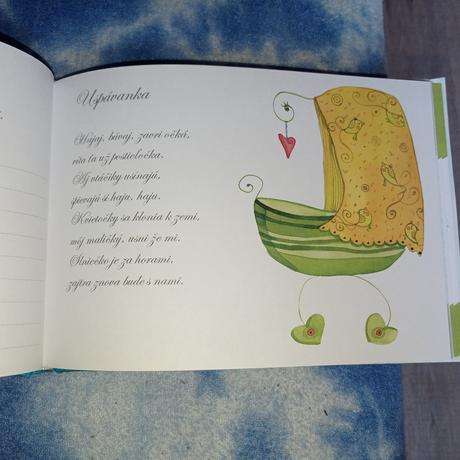 Uspávanka
Hajaj, búvaj, zavri očká,
víta ťa už postieľočka.
Aj vtáčiky usínajú,
spievajú si haju, haju.
Kvietočky sa klonia k zemi,
môj maličký, usni že mi.
Slniečko je za horami,
zajtra znova bude s nami.